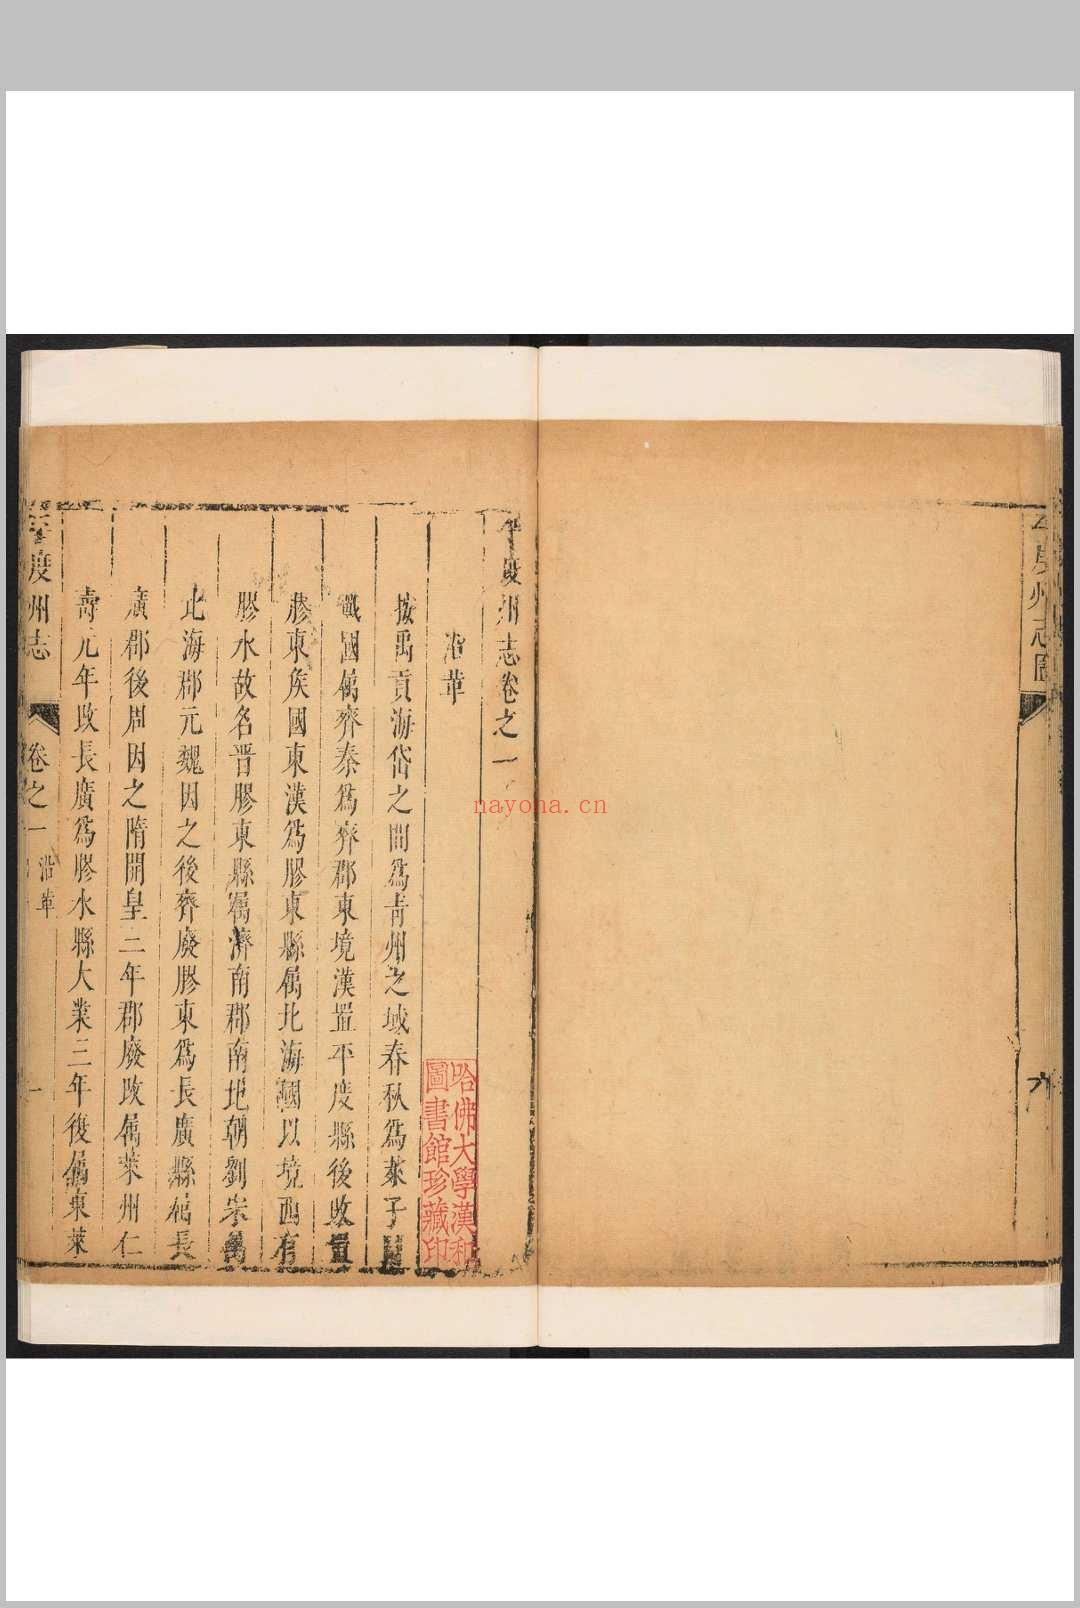 平度州志圖
六
平度州志卷之一
沿革
按禹貢海岱之間爲青州之域春秋爲萊子國
戰國屬齊秦爲齊郡東境漢置平度縣後改置
膠東侯國東漢爲膠東縣屬北海國以境西有
膠水故名晋膠東縣屬濟南郡南北朝劉宋屬
北海郡元魏因之後齊廢膠東爲長廣縣屬長
廣郡後周因之隋開皇二年郡廢改屬萊州仁
壽元年改長廣爲膠水縣大業三年復屬東萊
平度州志
卷之一
沿革
一
哈佛大學漢和
圖書館珍藏印
nayona.cn